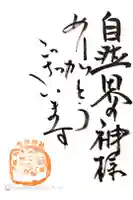 自然界の神様
ありがとう
ございます